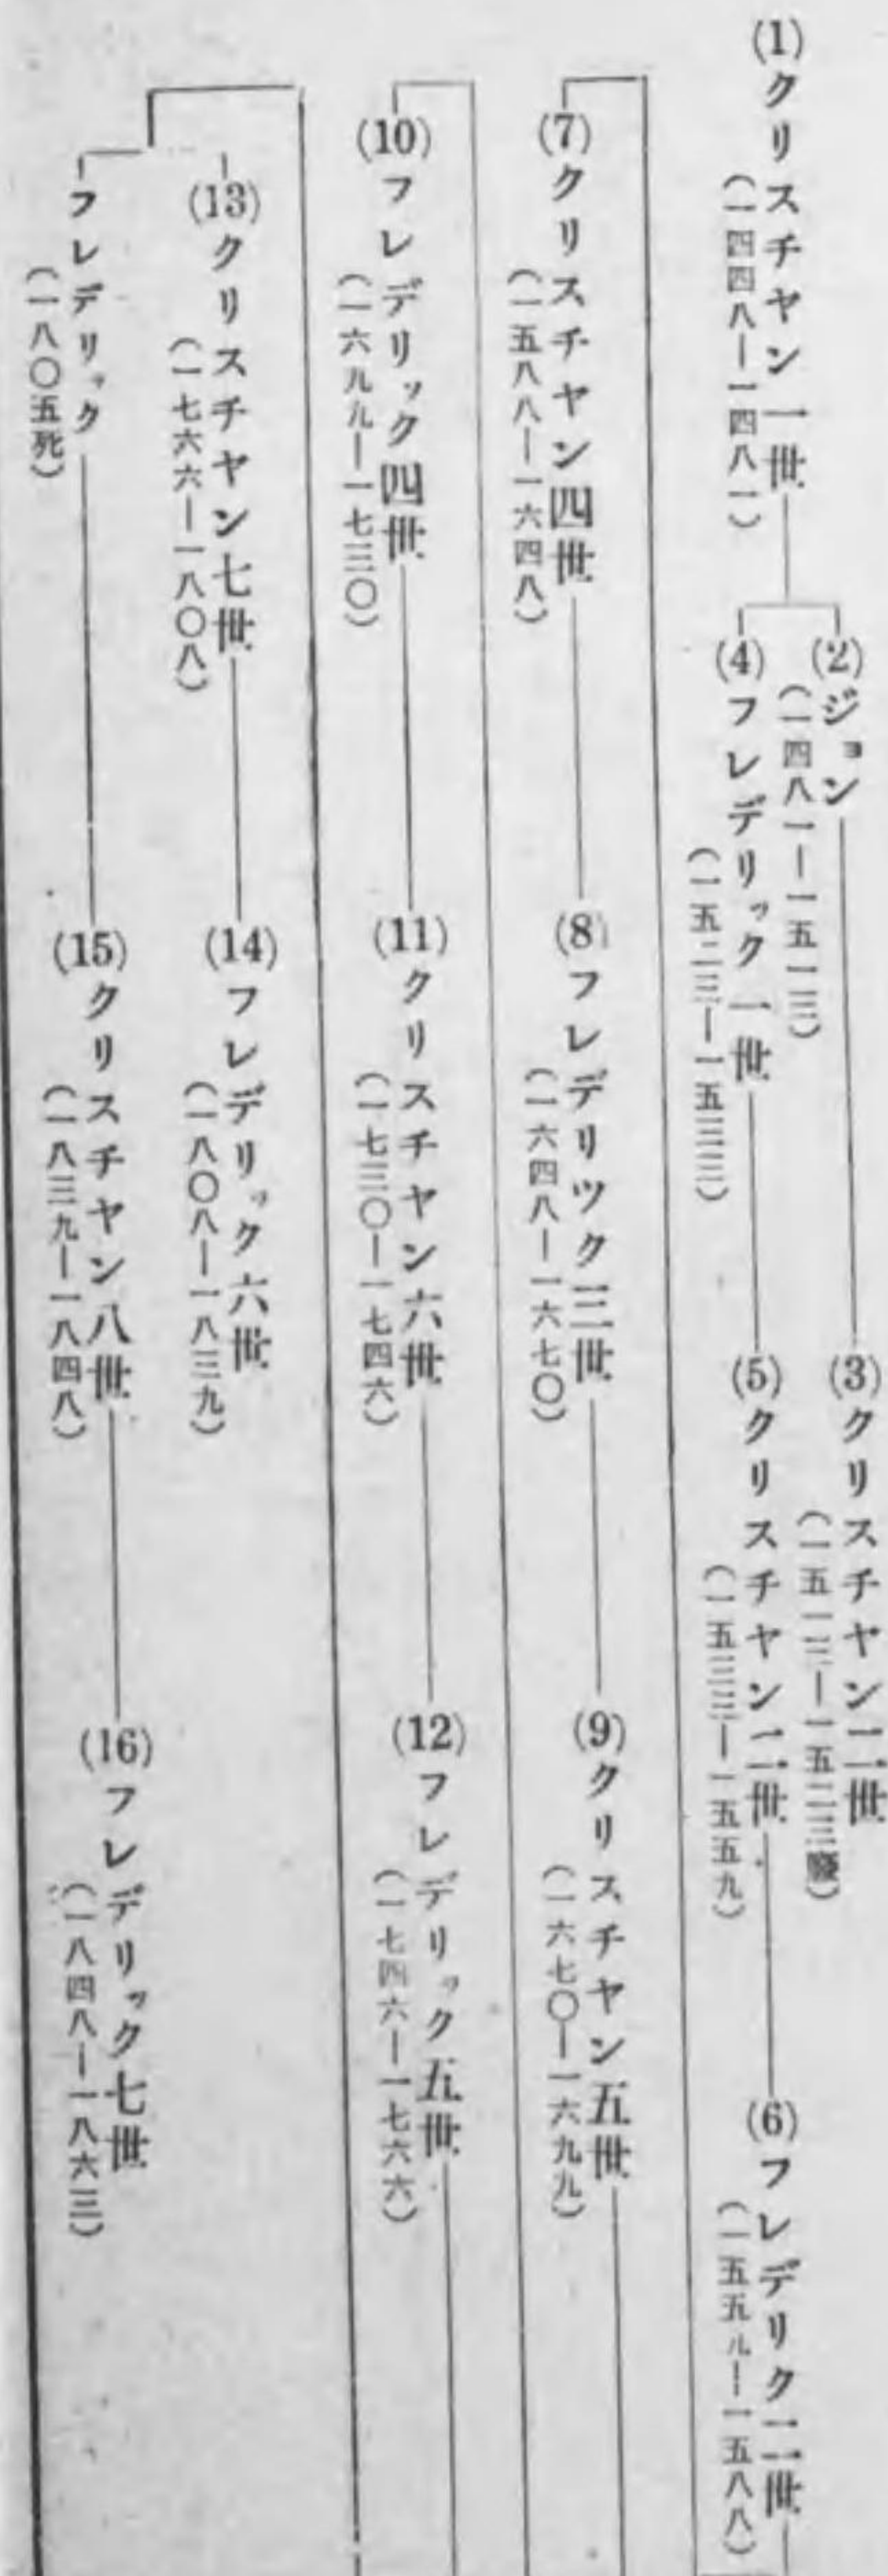 (1)クリスチヤン一世
(一四四八―一四八一)
(2)ジョン
(一四八一―一五一三)
(3)クリスチヤン二世
(一五一三―一五二三廢)
(4)フレデリック一世
(一五二三―一五三三)
(5)クリスチヤン二世
(一五三三―一五五九)
(6)フレデリク二世
(一五五九―一五八八)
(7)クリスチヤン四世
(一五八八―一六四八)
(8)フレデリツク三世
(一六四八―一六七〇)
(9)クリスチヤン五世
(一六七〇―一六九九)
(10)フレデリック四世
(一六九九―一七三〇)
(11)クリスチヤン六世
(一七三〇―一七四六)
(12)フレデリック五世
(一七四六―一七六六)
(13)クリスチヤン七世
(一七六六―一八〇八)
(14)フレデリック六世
(一八〇八―一八三九)
フレデリック
(一八〇五死)
(15)クリスチヤン八世
(一八三九―一八四八)
(16)フレデリック七世
(一八四八―一八六三)